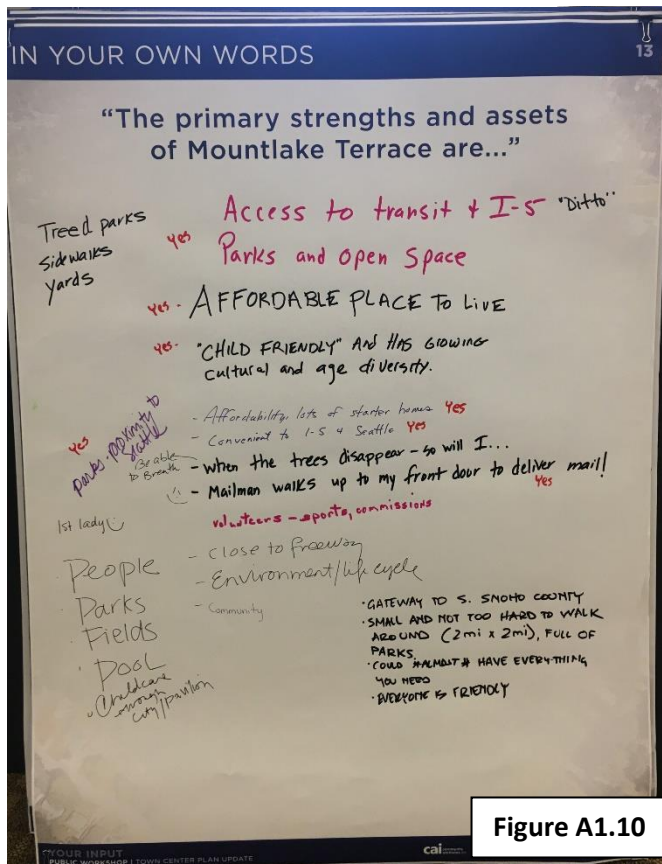 IN YOUR OWN WORDS
13
“The primary strengths and assets
of Mountlake Terrace are...”
Treed parks
sidewalks
yards
Access to transit + I-5 "Ditto"
yes
Parks and open Space
yes - AFFORDABLE PLACE TO LIVE
yes - "CHILD FRIENDLY" AND HAS GROWING
cultural and age diversity.
yes
parks - proximity to
Seattle
- Affordability, lots of starter homes Yes
- Convenient to I-5 + Seattle Yes
Be able
to Breath
- when the trees disappear - so will I...
- Mailman walks up to my front door to deliver mail!
Yes
1st lady
volunteers - sports, commissions
- close to freeway
- Environment/life cycle
- Community
· People
· Parks
· Fields
· Pool
· Childcare
through
city/pavilion
· GATEWAY TO S. SNOHO COUNTY
· SMALL AND NOT TOO HARD TO WALK
AROUND (2mi x 2mi), FULL OF
PARKS.
· COULD *ALMOST* HAVE EVERYTHING
YOU NEED
· EVERYONE IS FRIENDLY
YOUR INPUT
PUBLIC WORKSHOP | TOWN CENTER PLAN UPDATE
cai
Figure A1.10